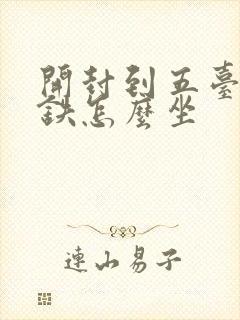 開封到五臺
鉄怎麼坐
連山易子